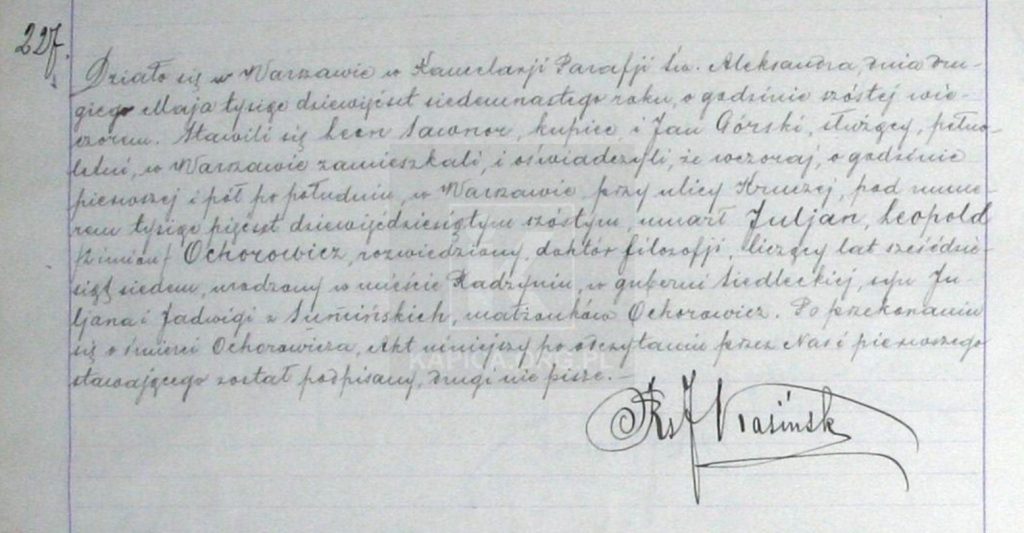 227.
Działo się w Warszawie w Kancelarji Parafji Św. Aleksandra, dnia dru-
giego Maja tysiąc dziewięćset siedemnastego roku, o godzinie szóstej wie-
czorem. Stawili się Leon Sawnor, kupiec i Jan Górski, służący, pełno-
letni, w Warszawie zamieszkali, i oświadczyli, że wczoraj, o godzinie
pierwszej i pół po południu, w Warszawie przy ulicy Kruczej, pod nume-
rem tysiąc pięćset dziewięćdziesiątym szóstym, umarł Juljan, Leopold
/2 imion/ Ochorowicz, rozwiedziony, doktór filozofji, liczący lat sześćdzie-
siąt siedem, urodzony w mieście Radzyniu, w gubernii Siedleckiej, syn Ju-
ljana i Jadwigi z Sumińskich, małżonków Ochorowicz. Po przekonaniu
się o śmierci Ochorowicza, Akt niniejszy po odczytaniu przez Nas i pierwszego
stawającego został podpisany, drugi nie pisze.—
KAPICA.ORG.PL
Ks J